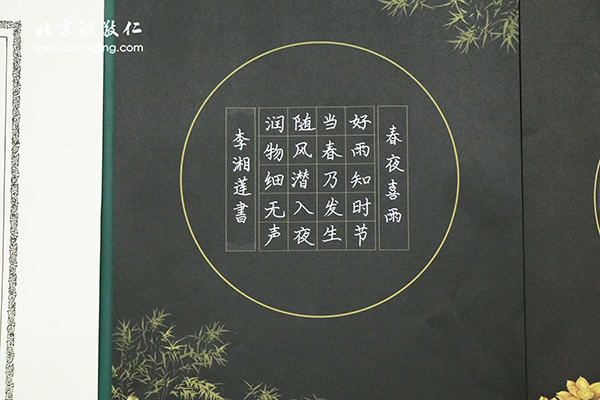 北京诚敬仁
www.chengjing.com
春夜喜雨
好雨知时节
当春乃发生
随风潜入夜
润物细无声
李湘莲書